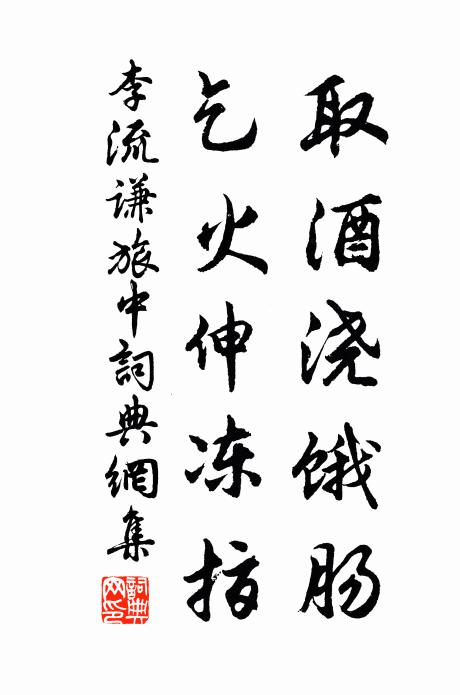 取酒浇饿肠
乞火伸冻指
李流谦旅中詞典網集
詞典网印